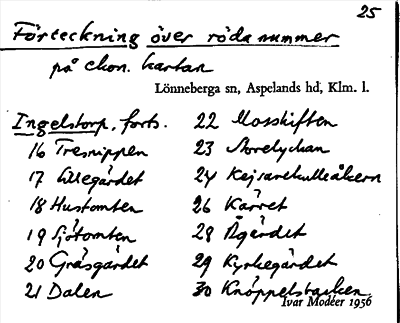 25
Förteckning över röda nummer
på ekon. kartan
Lönneberga sn, Aspelands hd, Klm. l.
Ingelstorp, forts.
16 Tresnippen
17 Lillegärdet
18 Hustomten
19 Sjötomten
20 Gräsgärdet
21 Dalen
22 Mosskiften
23 Storelyckan
24 Kejsarekulleåkern
26 Kärret
28 Ågärdet
29 Kyrkegärdet
30 Knöppelsbacken
Ivar Modéer 1956